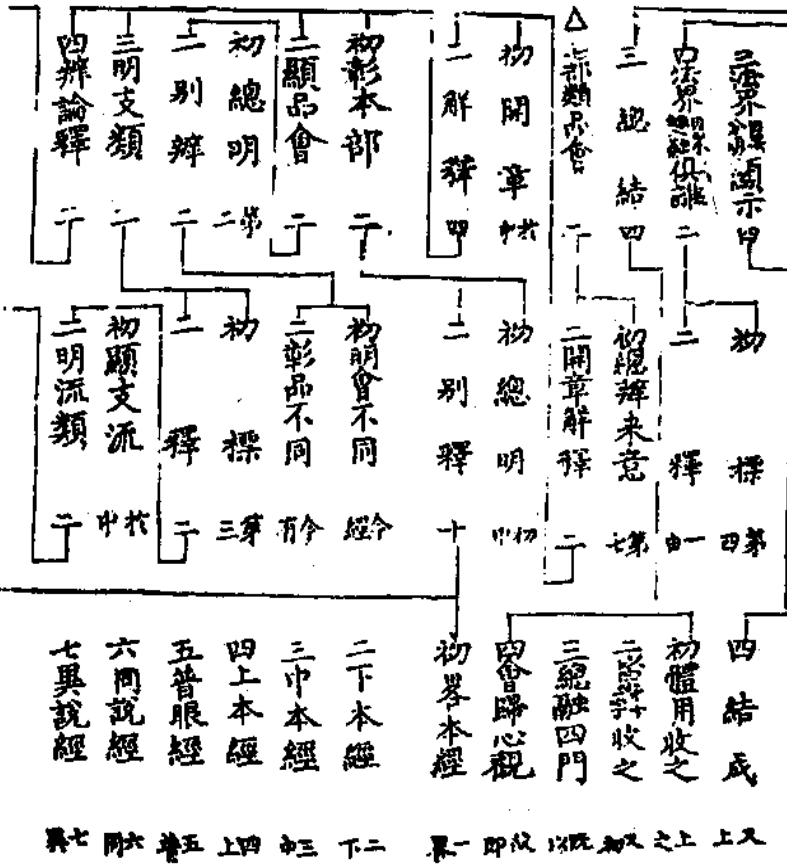 四
三總結 四
△ 類品會 二
初開章 於中
二解釋 四
初彰本部 二
二顯品會 二
初總明 第二
二別辨 二
三明支類 二
四辨論釋 二
初標 第四
二釋 一由
初總辨來意 第七
二開章解釋 二
初總明 初中
二別釋 十
初明會不同 今經
二彰品不同 今有
初標 第三
二釋 二
初顯支流 於中
二明流類 二
四結成 又上
初體用收之 上之
收之
三總融四門 既以
四會歸心觀 即
初畧本經 一畧
二下本經 二下
三中本經 三中
四上本經 四上
五普眼經 五普
六同說經 六同
七異說經 七異